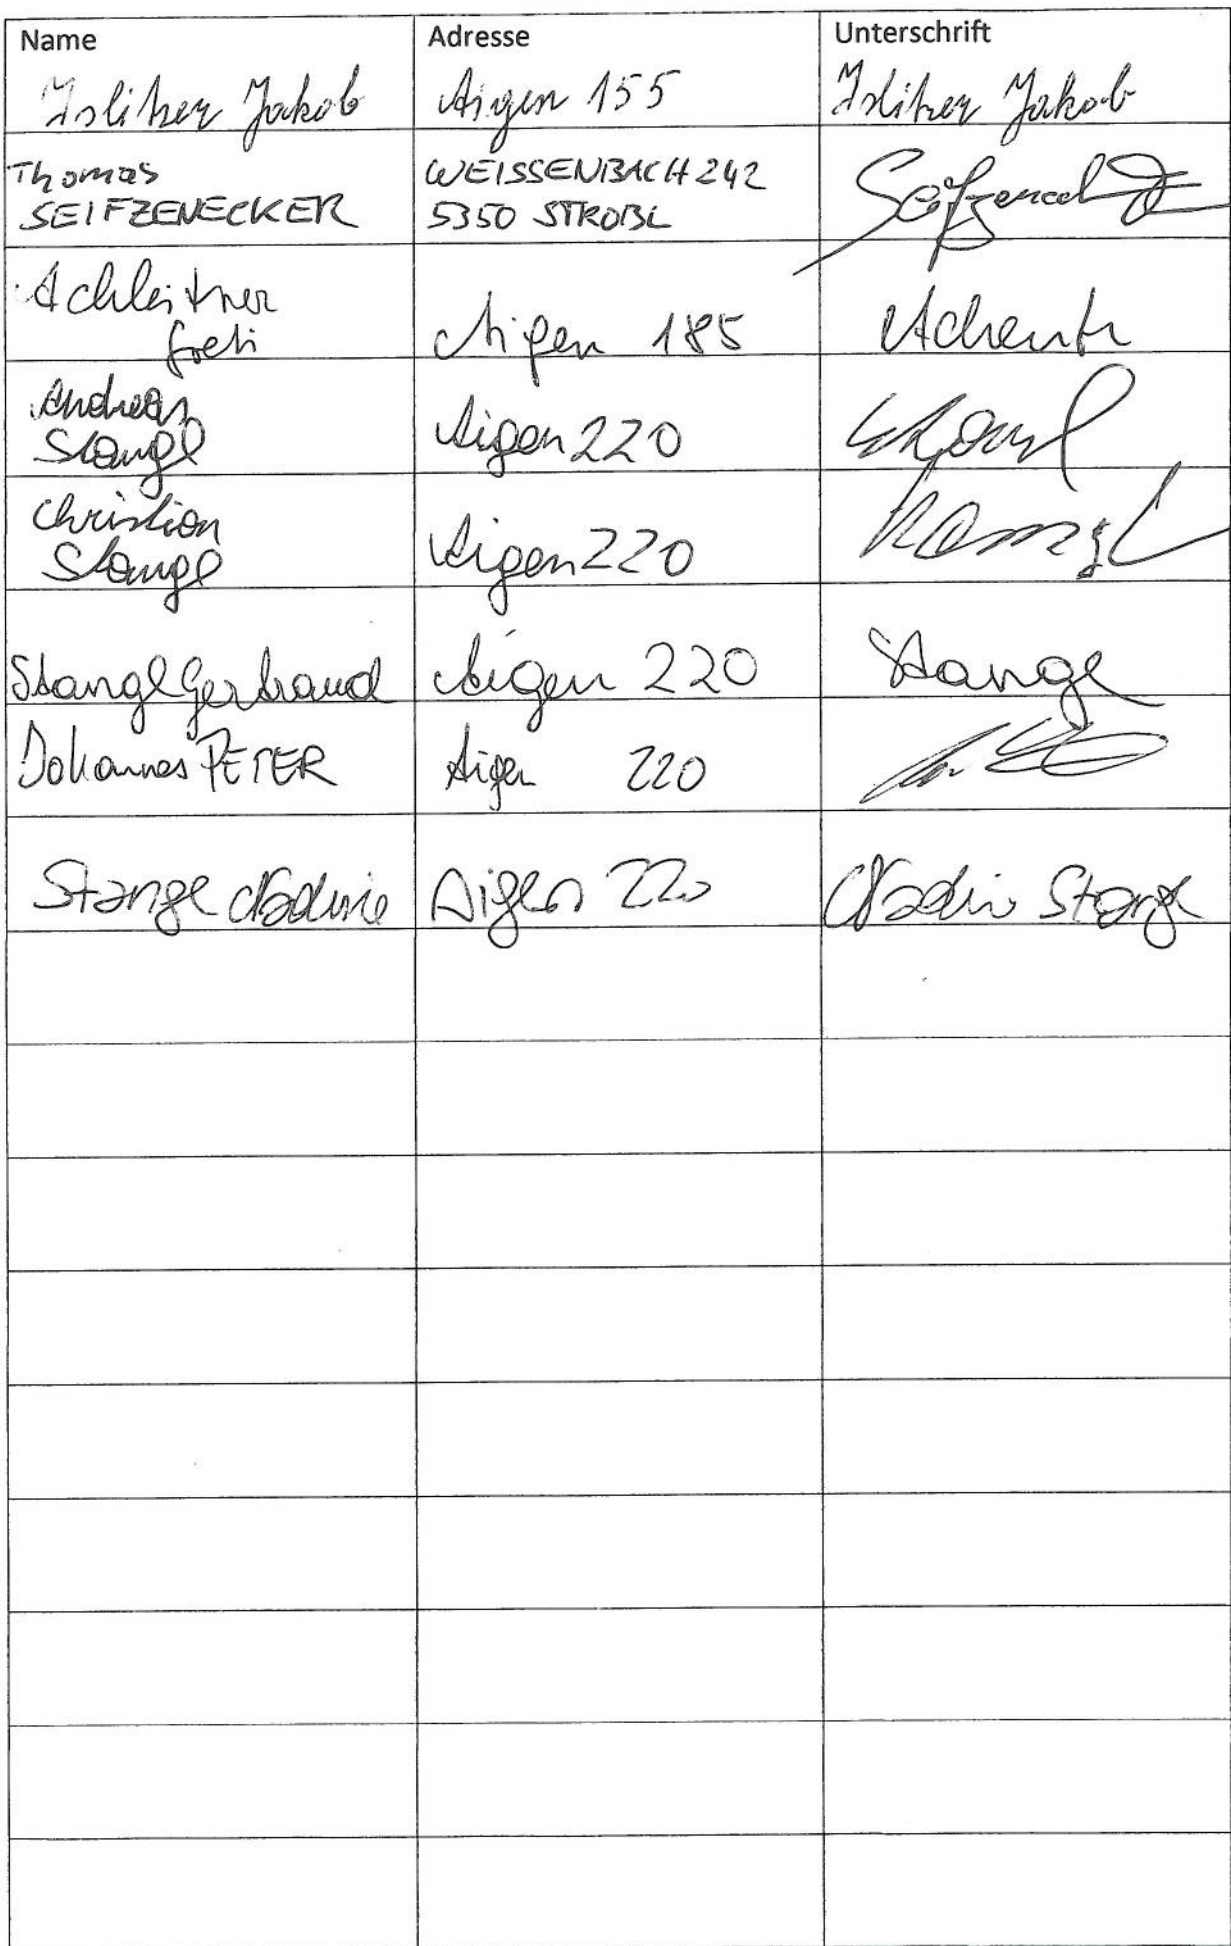 Name Adresse Unterschrift
Islitzer Jakob Aigen 155 Islitzer Jakob
Thomas WEISSENBACH 242
SEIFZENECKER 5350 STROBL
Achleitner
Greti Aigen 185
Andreas
Stangl Aigen 220
Christian
Stangl Aigen 220
Stangl Gertraud Aigen 220 Stangl
Johannes PETER Aigen 220
Stangl Nadine Aigen 220 Nadine Stangl